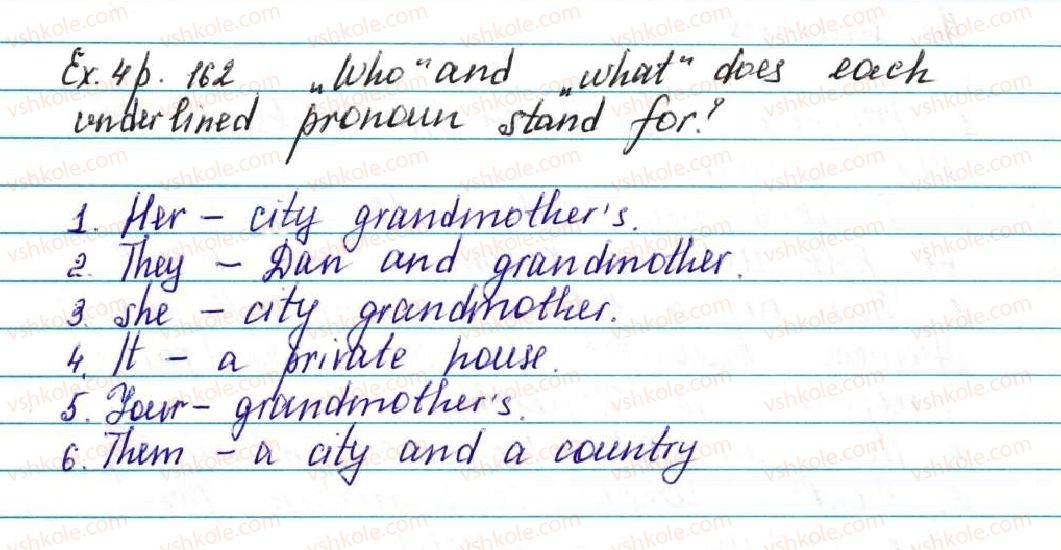 Ex. 4 p. 162 „Who“ and „what“ does each
underlined pronoun stand for?
1. Her – city grandmother's.
2. They – Dan and grandmother.
3. she – city grandmother.
4. It – a private house.
5. Your – grandmother's.
6. Them – a city and a country
vshkole.com